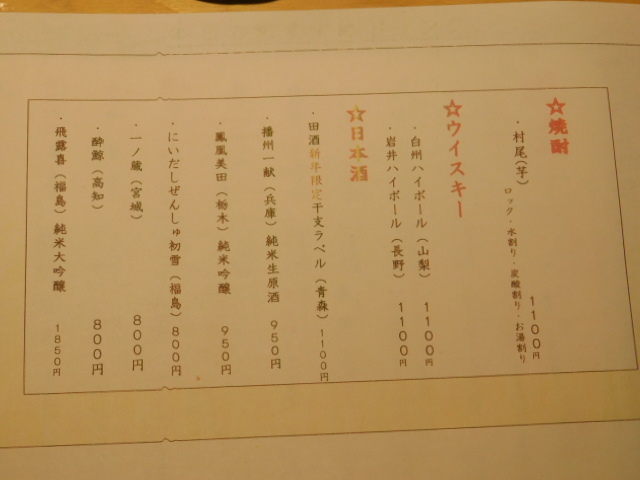 ☆焼酎
・村尾(芋) 1100円
ロック・水割り・炭酸割り・お湯割り
☆ウイスキー
・白州ハイボール(山梨) 1100円
・岩井ハイボール(長野) 1100円
☆日本酒
・田酒新年限定干支ラベル(青森) 1100円
・播州一献(兵庫)純米生原酒 950円
・鳳凰美田(栃木)純米吟醸 950円
・にいだしぜんしゅ初雪(福島) 800円
・一ノ蔵(宮城) 800円
・酔鯨(高知) 800円
・飛露喜(福島)純米大吟醸 1850円